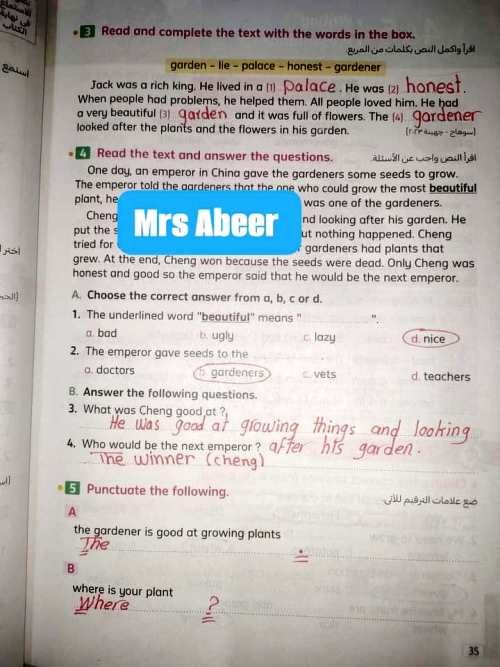 3 Read and complete the text with the words in the box.
اقرأ وأكمل النص بكلمات من المربع.
garden - lie - palace - honest - gardener
Jack was a rich king. He lived in a (1) palace. He was (2) honest.
When people had problems, he helped them. All people loved him. He had
a very beautiful (3) garden and it was full of flowers. The (4) gardener
looked after the plants and the flowers in his garden. (سوهاج - جهينة ٢٠٢٣)
4 Read the text and answer the questions. اقرأ النص وأجب عن الأسئلة.
One day, an emperor in China gave the gardeners some seeds to grow.
The emperor told the gardeners that the one who could grow the most beautiful
plant, he was one of the gardeners.
Cheng nd looking after his garden. He
put the s ut nothing happened. Cheng
tried for gardeners had plants that
Mrs Abeer
grew. At the end, Cheng won because the seeds were dead. Only Cheng was
honest and good so the emperor said that he would be the next emperor.
A. Choose the correct answer from a, b, c or d.
1. The underlined word "beautiful" means " ".
a. bad b. ugly c. lazy d. nice
2. The emperor gave seeds to the
a. doctors b. gardeners c. vets d. teachers
B. Answer the following questions.
3. What was Cheng good at ?
He was good at growing things and looking
after his garden.
4. Who would be the next emperor ?
The winner (cheng)
5 Punctuate the following. ضع علامات الترقيم للآتى.
A
the gardener is good at growing plants
The .
B
where is your plant
Where ?
35